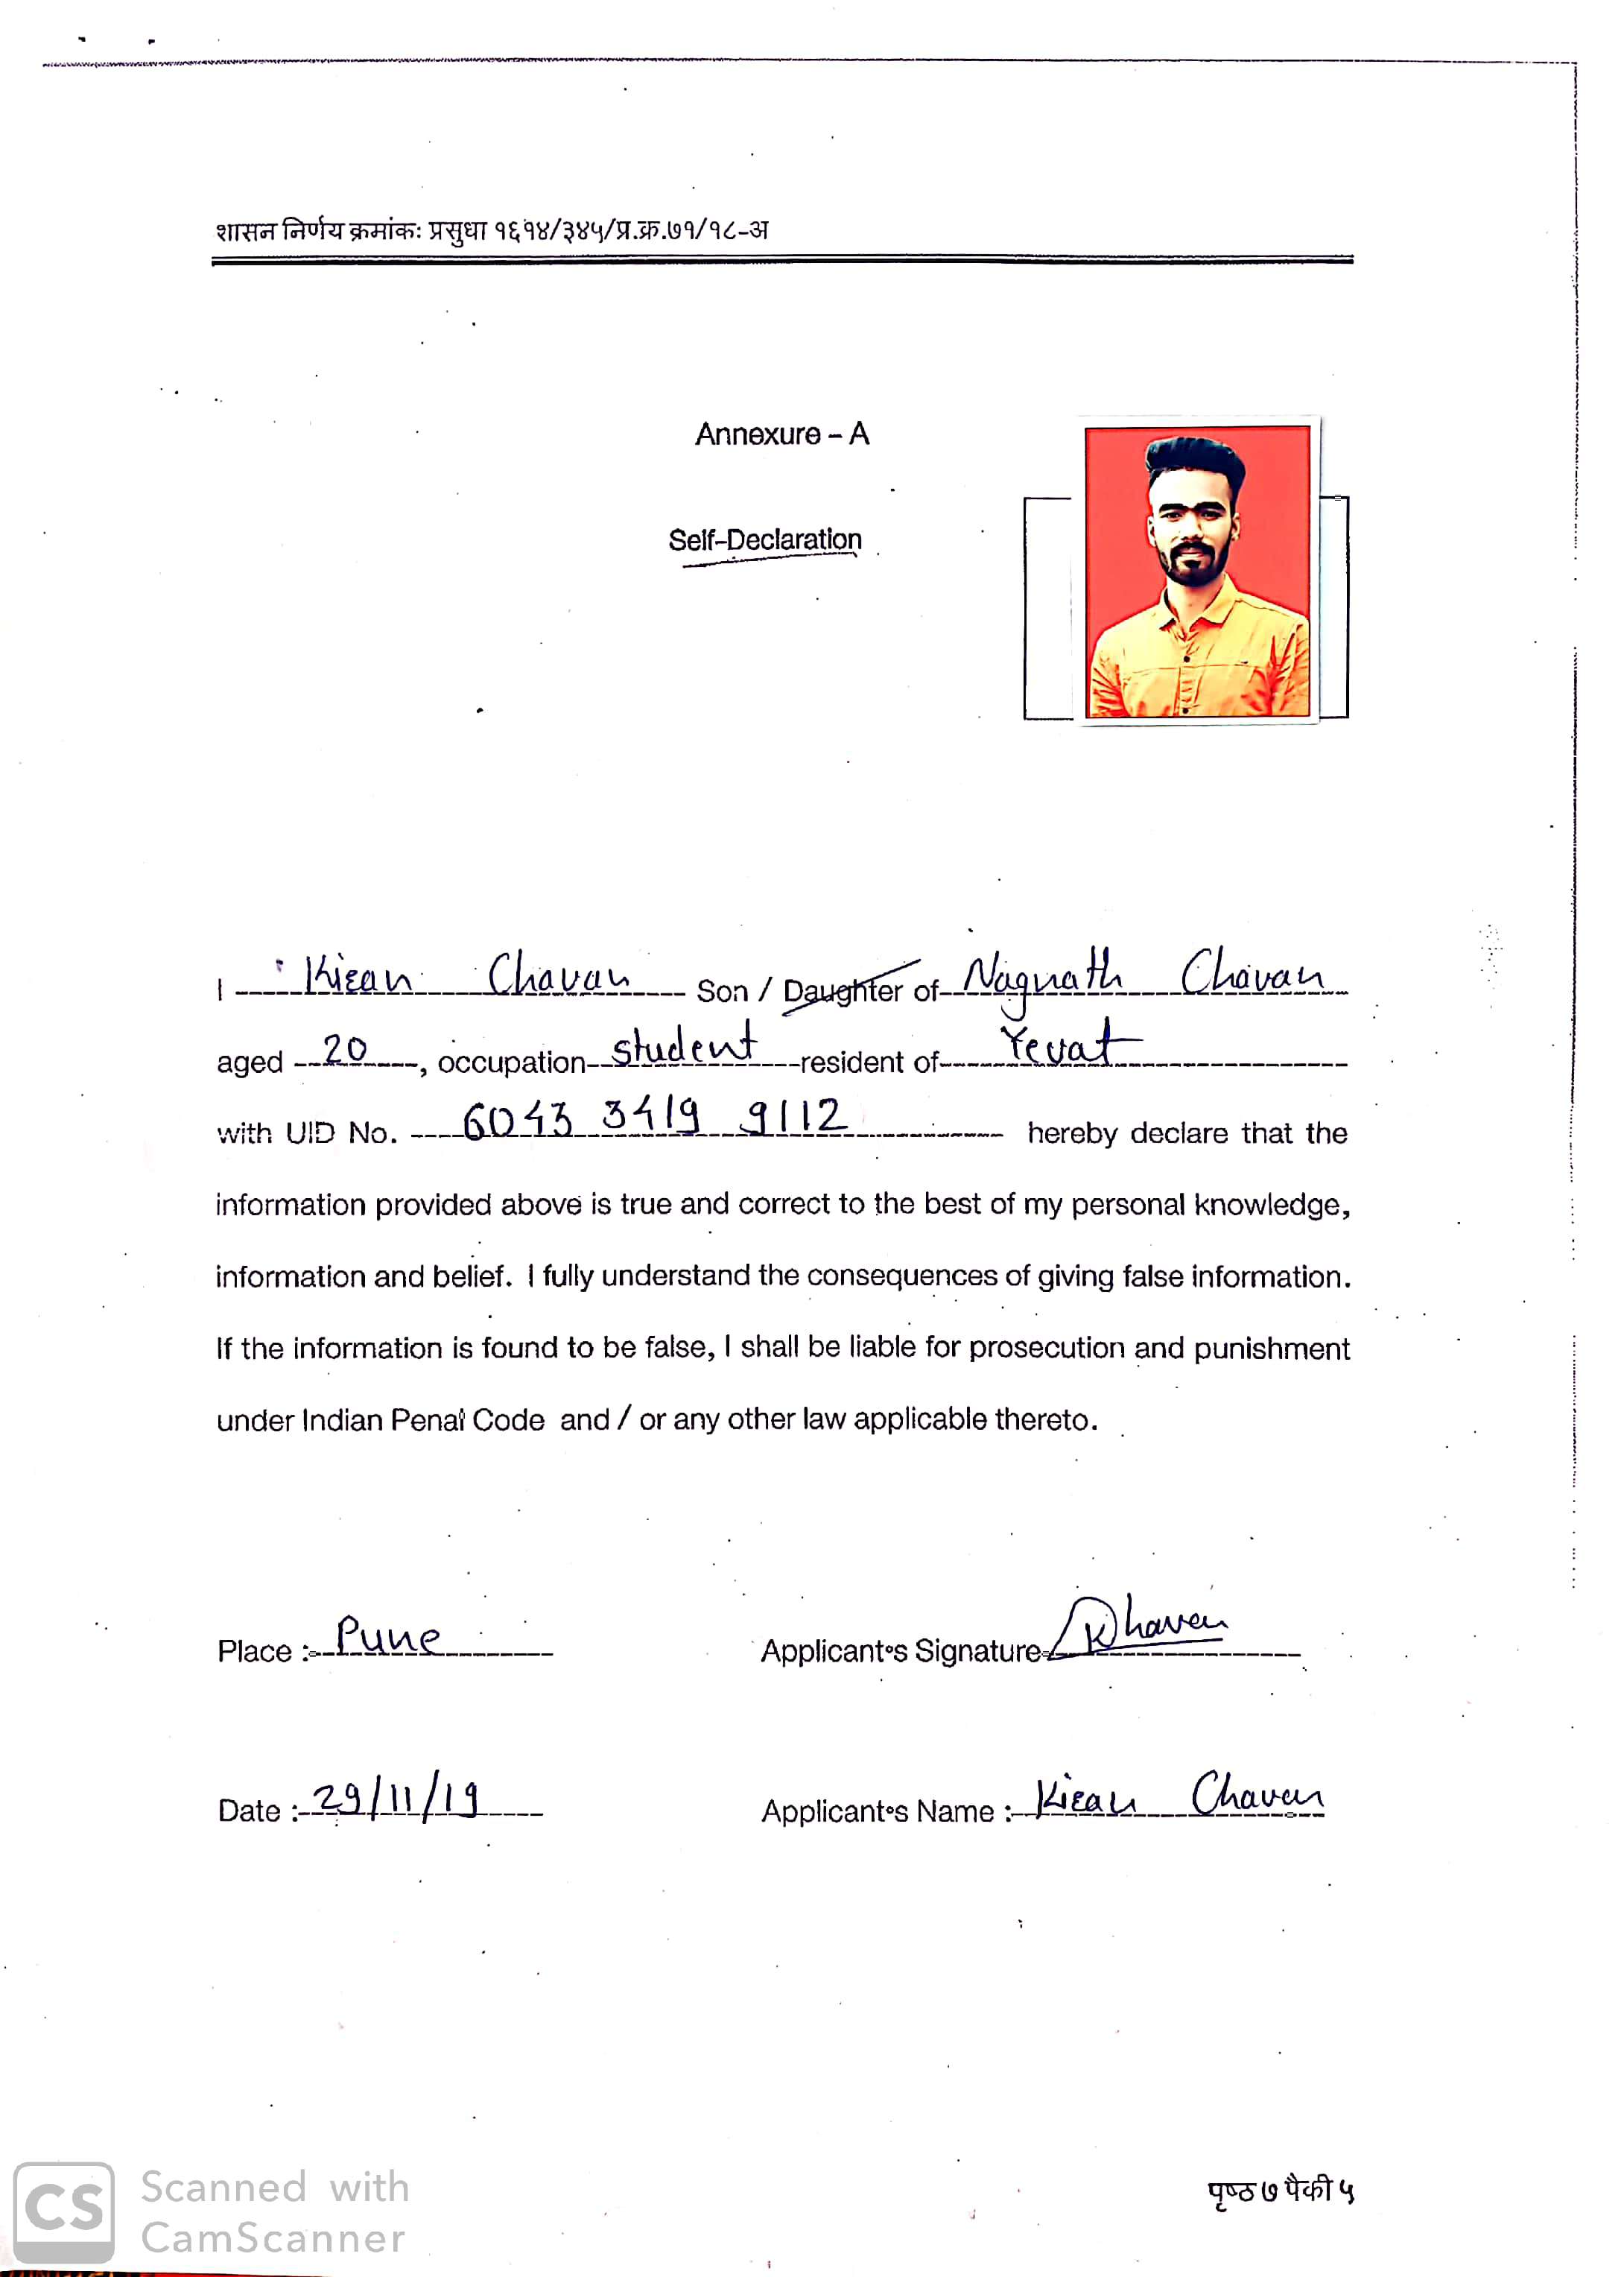 शासन निर्णय क्रमांकः प्रसुधा १६१४/३४५/प्र.क्र.७१/१८-अ
Annexure – A
Self-Declaration
I Kiran Chavan Son / Daughter of Nagnath Chavan
aged 20, occupation student resident of Yevat
with UID No. 6043 3419 9112 hereby declare that the
information provided above is true and correct to the best of my personal knowledge,
information and belief. I fully understand the consequences of giving false information.
If the information is found to be false, I shall be liable for prosecution and punishment
under Indian Penal Code and / or any other law applicable thereto.
Place :- Pune Applicant's Signature Chavan
Date :- 29/11/19 Applicant's Name :- Kiran Chavan
पृष्ठ ७ पैकी ५
CS Scanned with
CamScanner